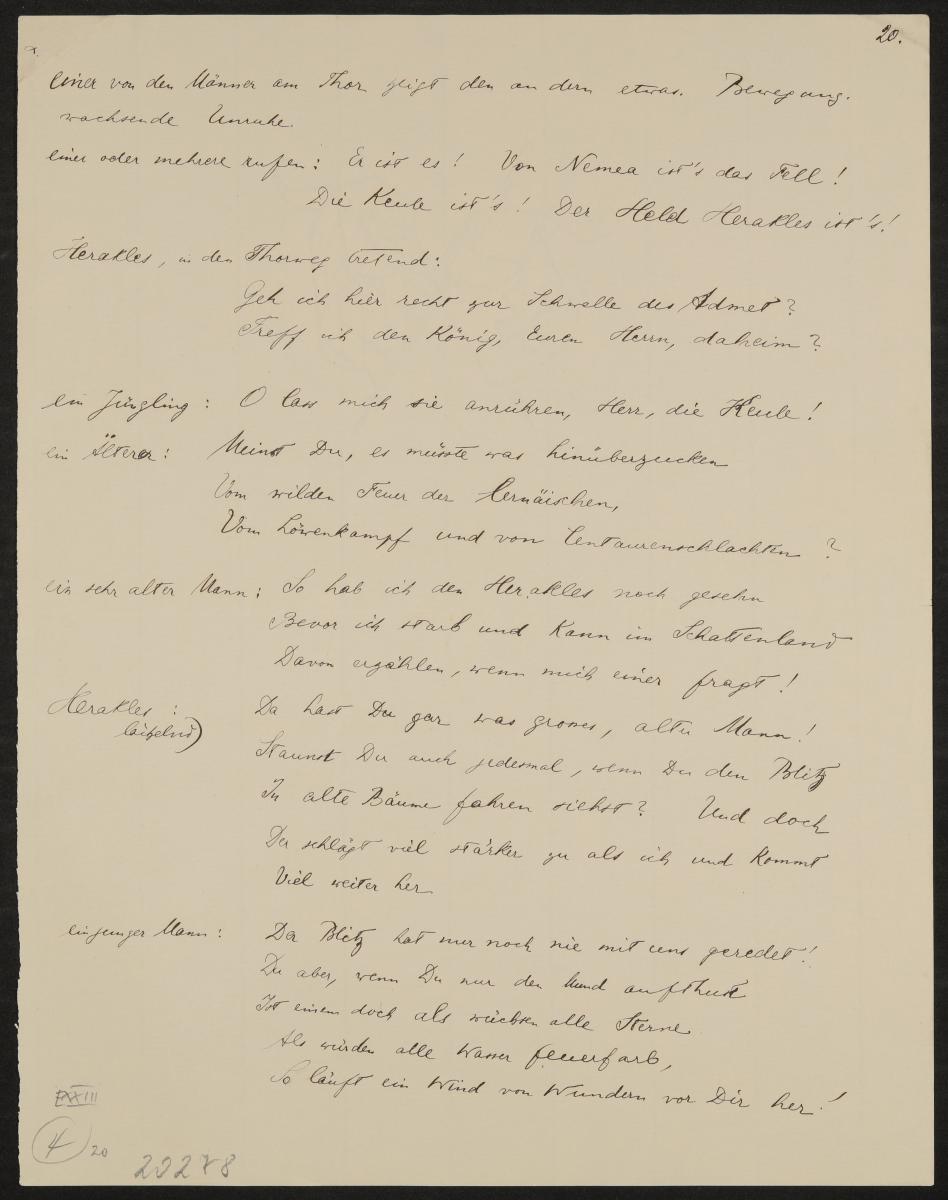 20.
einer von den Männer am Thor zeigt den andern etwas. Bewegung.
wachsende Unruhe.
einer oder mehrere rufen: Er ist es! Von Nemea ist's das Fell!
Die Keule ist's! Der Held Herakles ist's!
Herakles, in den Thorweg tretend:
Geh ich hier recht zur Schwelle des Admet?
Treff ich den König, Euren Herrn, daheim?
ein Jüngling: O lass mich sie anrühren, Herr, die Keule!
ein Älterer: Meinst Du, es müsste was hinüberzucken
Vom wilden Feuer der lernäischen,
Vom Löwenkampf und von Centaurenschlachten?
ein sehr alter Mann: So hab ich den Herakles noch gesehn
Bevor ich starb und kann im Schattenland
Davon erzählen, wenn mich einer fragt!
Herakles: Da hast Du gar was grosses, alter Mann!
lächelnd) Staunst Du auch jedesmal, wenn Du den Blitz
In alte Bäume fahren siehst? Und doch
Der schlägt viel stärker zu als ich und kommt
Viel weiter her
ein junger Mann: Der Blitz hat nur noch nie mit uns geredet!
Du aber, wenn Du nur den Mund aufthust
Ist einem doch als wüchsen alle Sterne
Als würden alle Wasser feuerfarb,
So läuft ein Wind von Wundern vor Dir her!
XXIII
4 20
20278